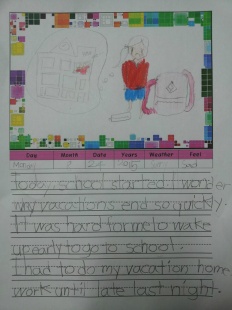 Day Month Date Years Weather Feel
today school started. I wonder
why vacations end so quickly.
It was hard for me to wake
up early to go to school.
I had to do my vacation home
work until late last night.